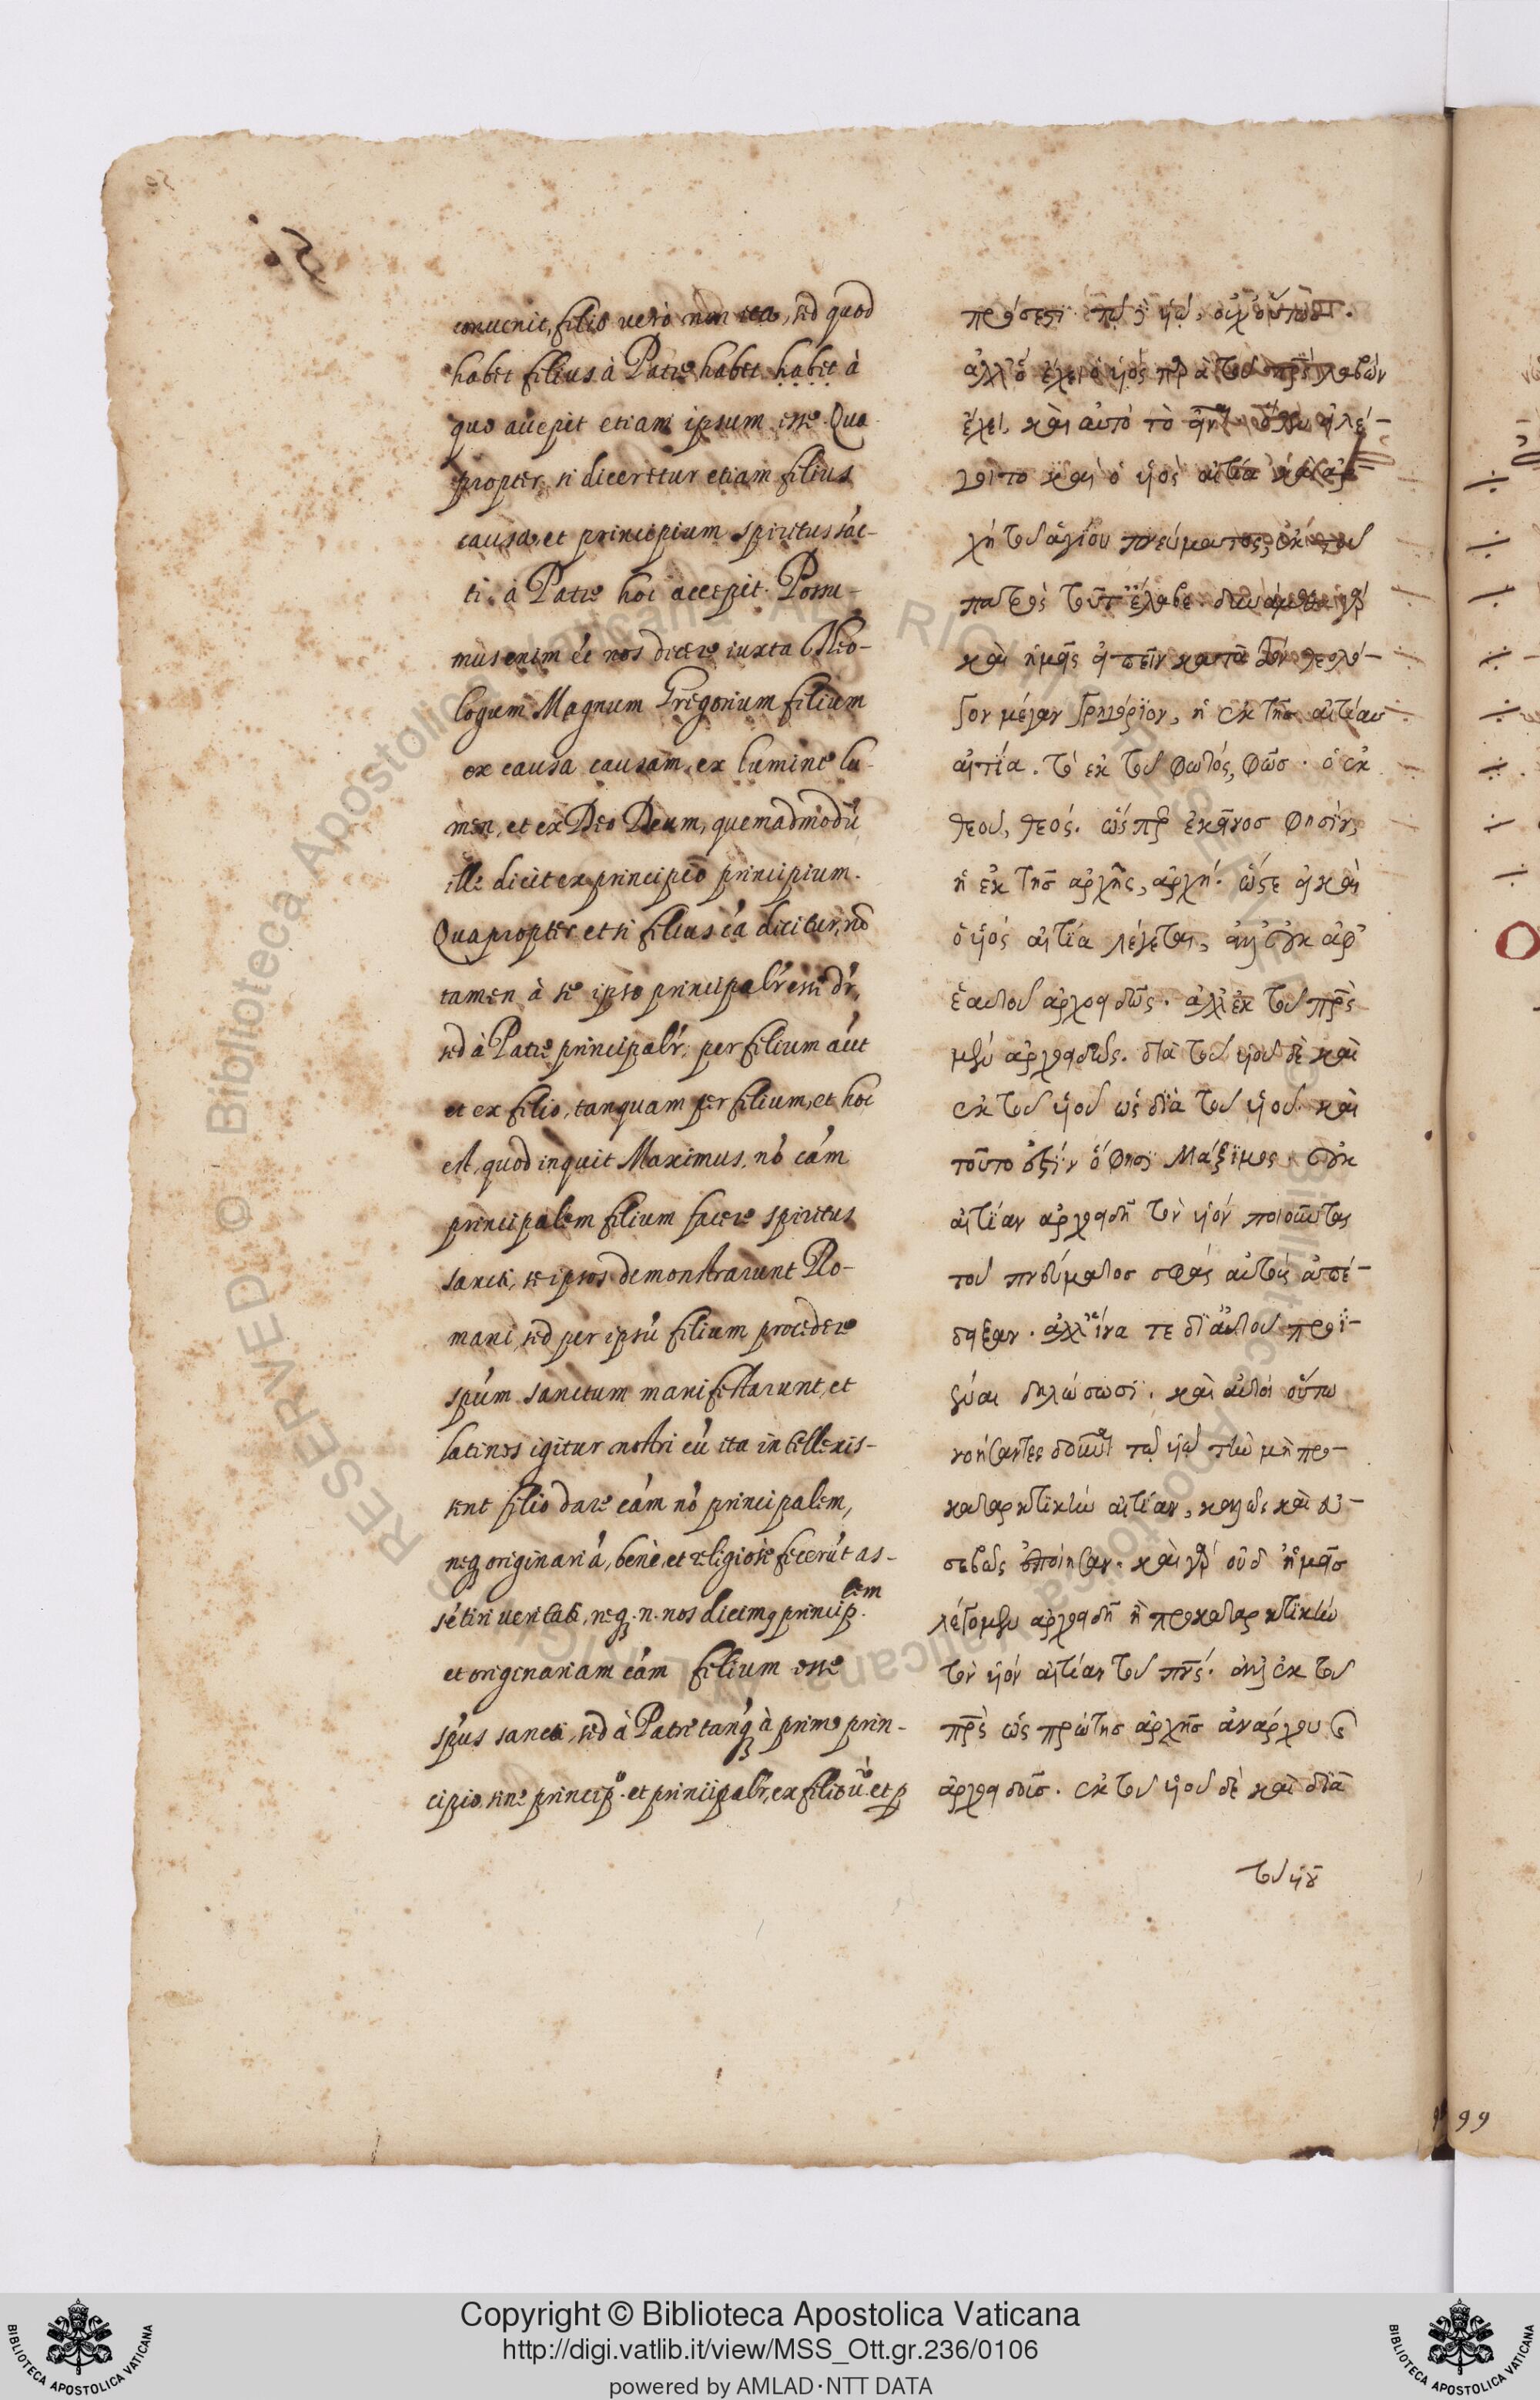 convenit, filio uerò non ita, sed quod
habet filius à Patre habet habet à
quo accepit etiam ipsum esse. Qua
propter, si diceretur etiam filius
causa, et principium spiritus sác-
ti, à Patre hoc accepit. Possu-
mus enim et nos dicere iuxta Theo-
logum Magnum Gregorium filium
ex causa causam, ex lumine lu-
men, et ex Deo Deum, quemadmodū
ille dicit ex principio principium.
Quapropter et si filius cá dicitur, nō
tamen à se ipso principalr esse dr,
sed à Patre principalr, per filium aút
et ex filio, tanquam per filium, et hoc
est, quod inquit Maximus, nó cám
principalem filium facere spiritus
sancti, se ipsos demonstrarunt Ro-
mani, sed per ipsū filium procedere
spúm sanctum manifestarunt, et
latinos igitur nostri cū ita intellexis-
sent filio dare cám nó principalem,
neq originariá, benè, et religiosè fecerút as-
sétiri veritati, neq. n. nos dicimq principlem
et originariam cám filium esse
spús sancti, sed à Patre tanq à primo prin-
cipio sine princip.o et principalr, ex filio ū. et p
πρόσεστι τῷ υἱῷ, οὐχ οὕτως.
ἀλλ' ὃ ἔχει ὁ υἱός παρὰ τοῦ πρς λαβών
ἔχει, καὶ αὐτό τὸ εἶναι. εἰ λέ-
γοιτο καὶ ὁ υἱός αἰτία καὶ ἀρ-
χή τοῦ ἁγίου πνεύματος, ἐκ τοῦ
πατρός τοῦτ' ἔλαβε. δυνάμεθα γάρ
καὶ ἡμᾶς εἰπεῖν κατὰ τὸν θεολό-
γον μέγαν Γρηγόριον, ἡ ἐκ τῆς αἰτίας
αἰτία. τό ἐκ τοῦ φωτός, φῶς. ὁ ἐκ
θεοῦ, θεός. ὥσπερ ἐκεῖνος φησίν,
ἡ ἐκ τῆς ἀρχῆς, ἀρχή. ὥστε εἰ καὶ
ὁ υἱός αἰτία λέγεται, ἀλλ' οὐκ ἀφ'
ἑαυτοῦ ἀρχοειδῶς. ἀλλ' ἐκ τοῦ πρς
μέν ἀρχοειδῶς. διὰ τοῦ υἱοῦ δὲ καὶ
ἐκ τοῦ υἱοῦ ὡς διὰ τοῦ υἱοῦ. καὶ
τοῦτο ἐστίν ὅ φησι Μάξιμος. οὐκ
αἰτίαν ἀρχοειδῆ τὸν υἱόν ποιοῦντας
τοῦ πνεύματος σφάς αὐτούς ἀπέ-
δειξαν. ἀλλ' ἵνα τε δι' αὐτοῦ προϊ-
έναι δηλώσωσι. καὶ αὐτοί οὕτω
νοήσαντες δοῦναι τῷ υἱῷ τὴν μὴ προ-
καταρκτικὴν αἰτίαν, καλῶς καὶ εὐ-
σεβῶς ἐποίησαν. καὶ γάρ οὐδ' ἡμᾶς
λέγομεν ἀρχοειδῆ ἢ προκαταρκτικὴν
τὸν υἱόν αἰτίαν τοῦ πνς. ἀλλ' ἐκ τοῦ
πρς ὡς πρώτης ἀρχῆς ἀνάρχου καὶ
ἀρχοειδοῦς. ἐκ τοῦ υἱοῦ δὲ καὶ διὰ
τοῦ υἱοῦ
99
Copyright © Biblioteca Apostolica Vaticana
http://digi.vatlib.it/view/MSS_Ott.gr.236/0106
powered by AMLAD·NTT DATA